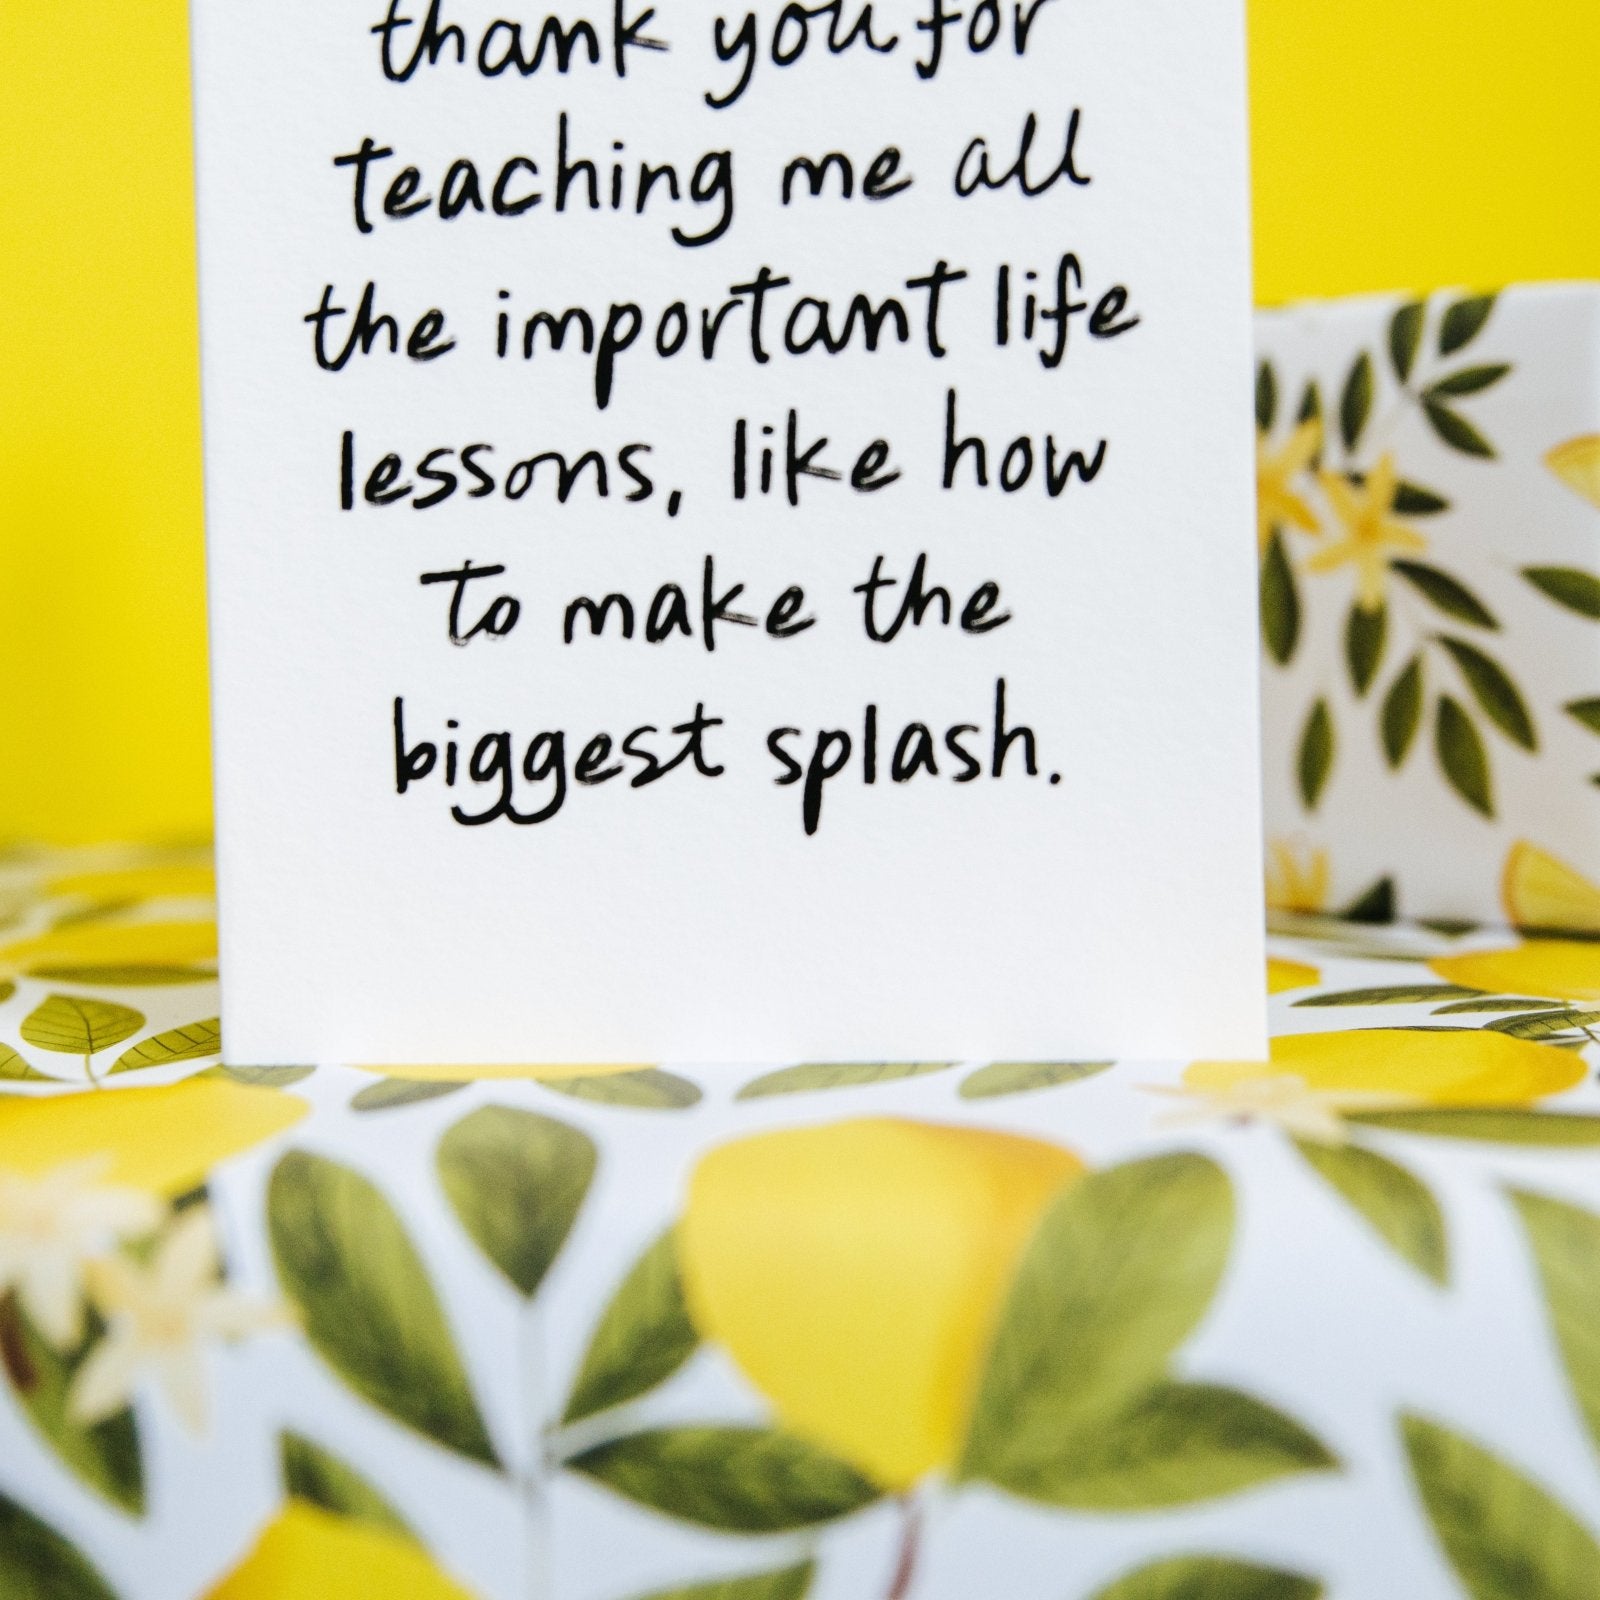 thank you for
teaching me all
the important life
lessons, like how
to make the
biggest splash.